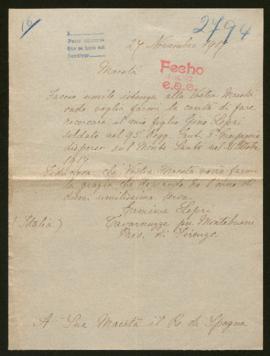 2794
27 Novembre 1917
Fecho
Maestà
Faccio umile istanza alla Vostra Maestà
onde voglia farmi la carità di fare
ricercare il mio figlio Gino Lapi
soldato nel 95° Regg. Fant. 5ª Compagnia
disperso sul Monte Santo nel
1917
Fiduciosa che Vostra Maestà vorrà farmi
la grazia che
umilissima serva
Lapi
(Italia) Tavarnuzze per Montebuoni
Prov. di Firenze
A Sua Maestà il Re di Spagna